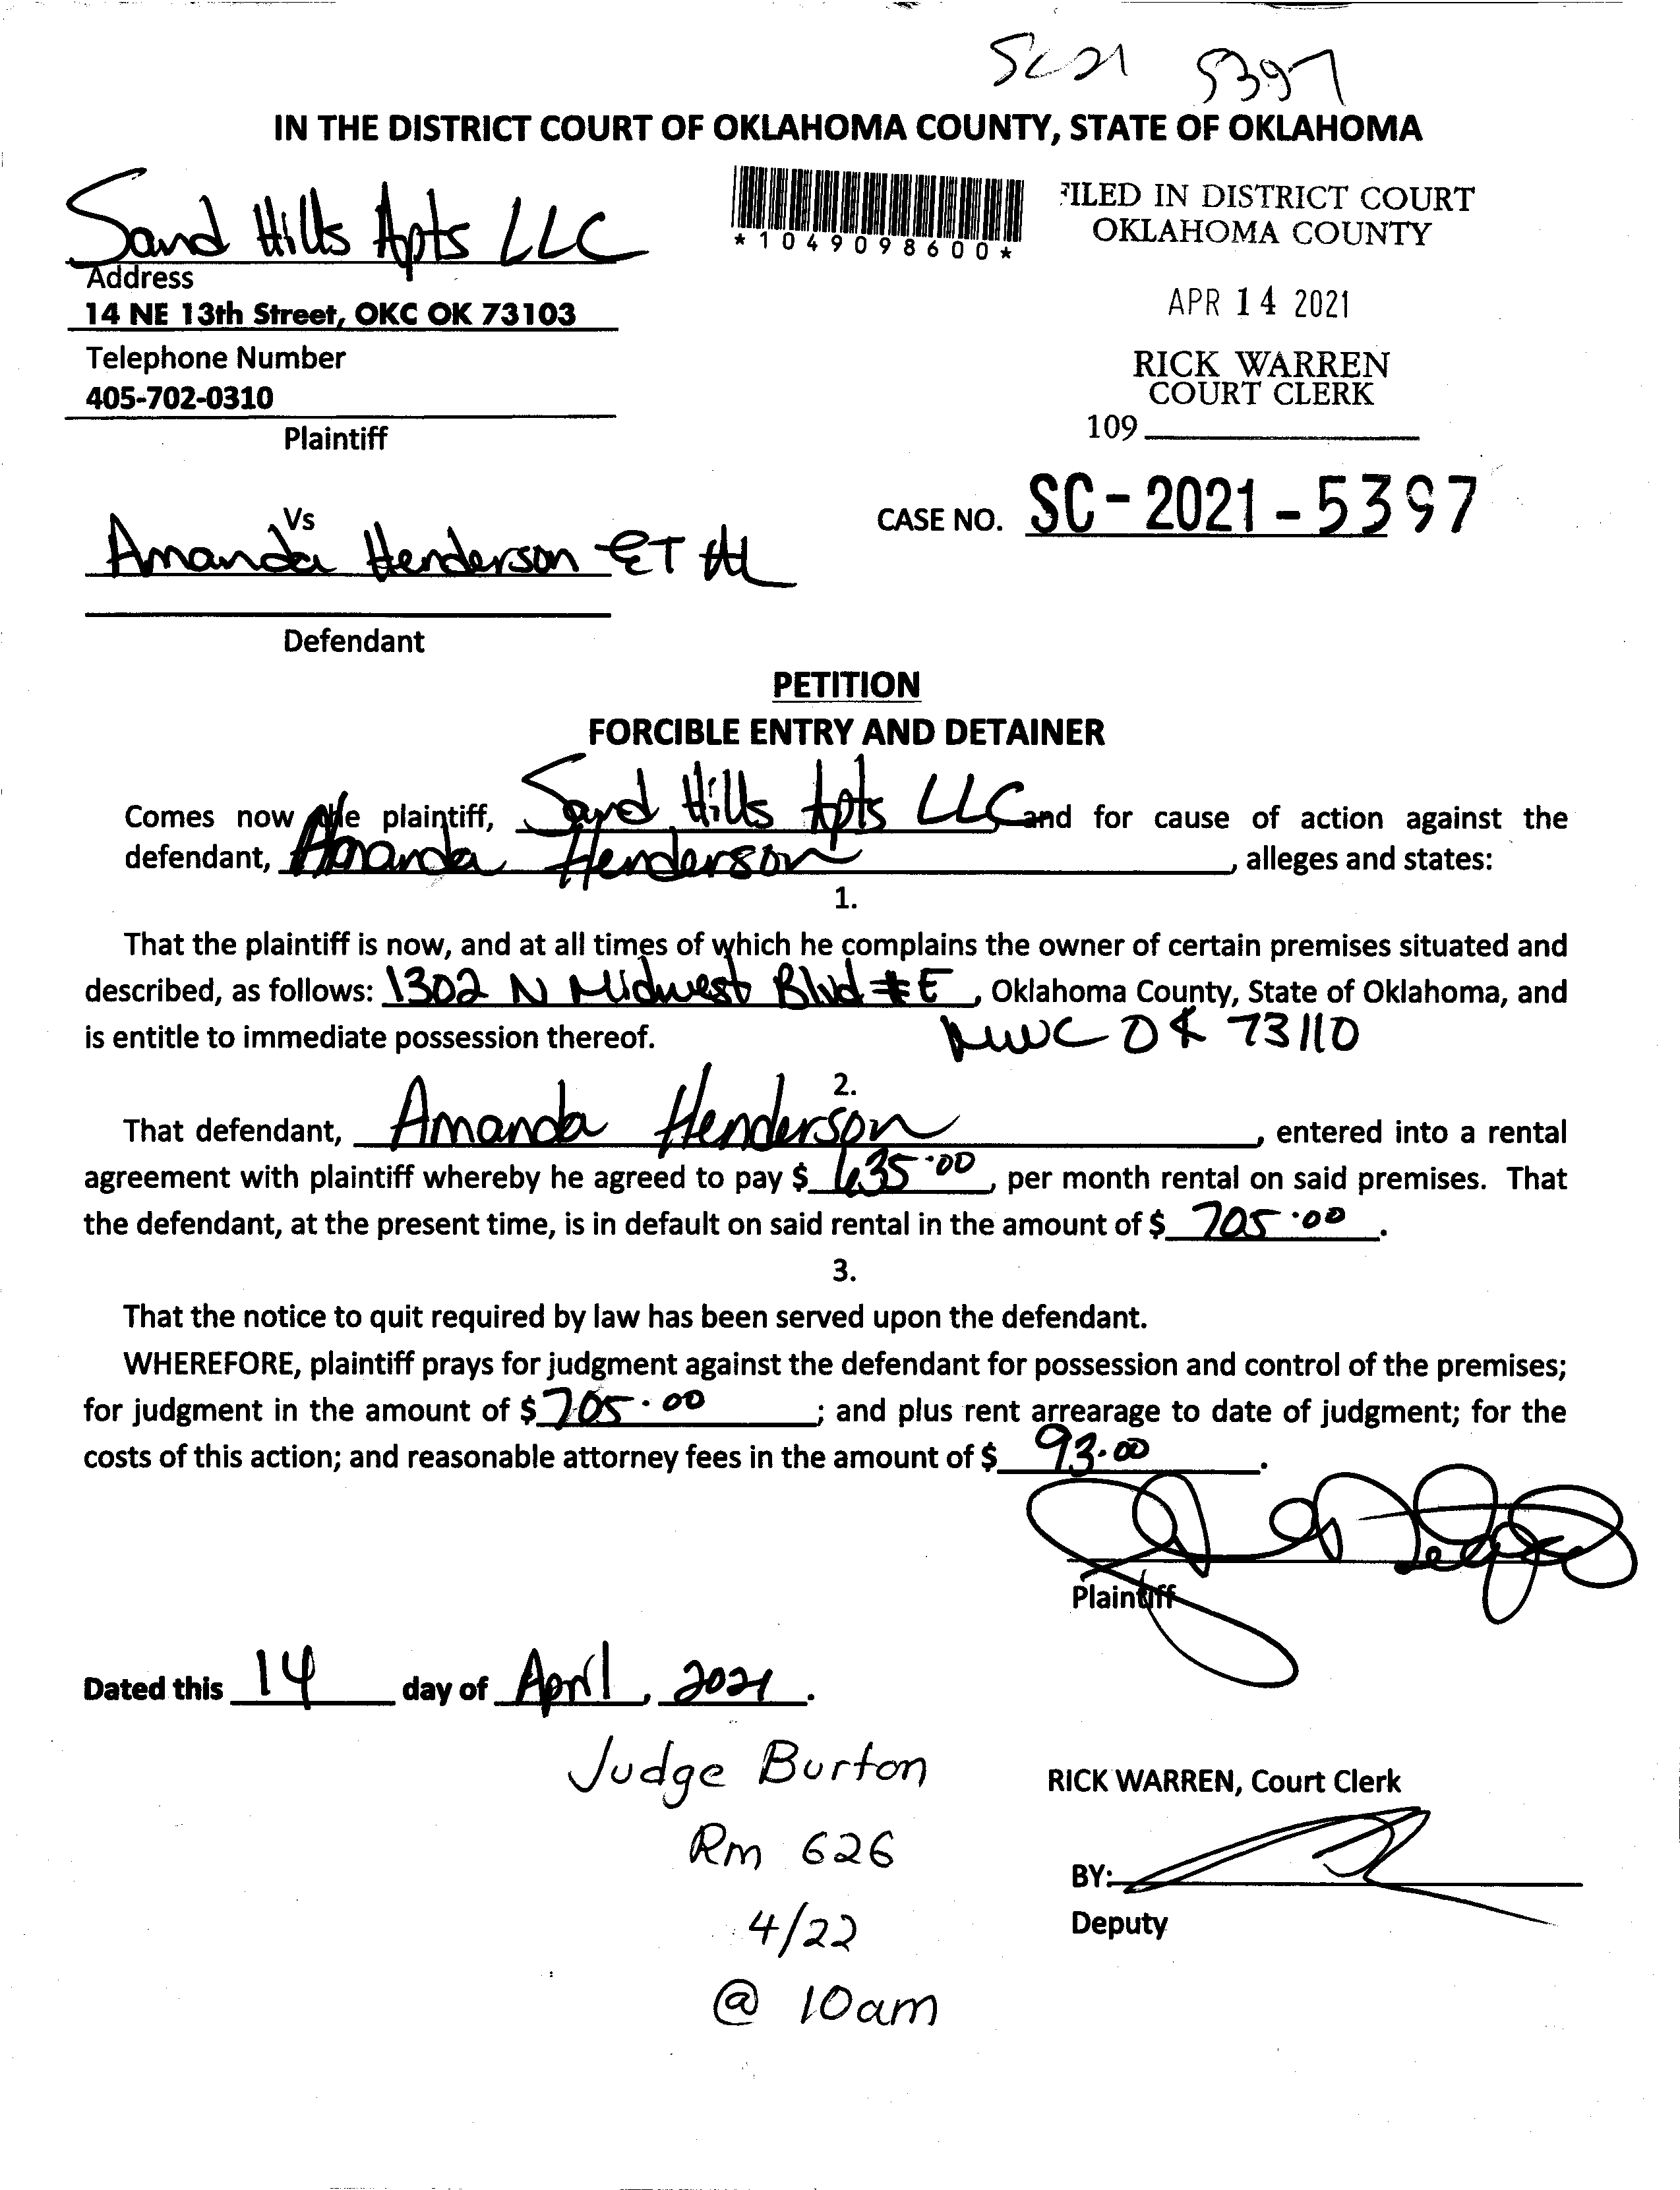 SC21 5397
IN THE DISTRICT COURT OF OKLAHOMA COUNTY, STATE OF OKLAHOMA
Sand Hills Apts LLC
Address
14 NE 13th Street, OKC OK 73103
Telephone Number
405-702-0310
Plaintiff
*1049098600*
FILED IN DISTRICT COURT
OKLAHOMA COUNTY
APR 14 2021
RICK WARREN
COURT CLERK
109
CASE NO. SC-2021-5397
Vs
Amanda Henderson ET AL
Defendant
PETITION
FORCIBLE ENTRY AND DETAINER
Comes now the plaintiff, Sand Hills Apts LLC and for cause of action against the
defendant, Amanda Henderson, alleges and states:
1.
That the plaintiff is now, and at all times of which he complains the owner of certain premises situated and
described, as follows: 1302 N Midwest Blvd #E, Oklahoma County, State of Oklahoma, and
is entitle to immediate possession thereof. MWC OK 73110
2.
That defendant, Amanda Henderson, entered into a rental
agreement with plaintiff whereby he agreed to pay $ 635.00, per month rental on said premises. That
the defendant, at the present time, is in default on said rental in the amount of $ 705.00.
3.
That the notice to quit required by law has been served upon the defendant.
WHEREFORE, plaintiff prays for judgment against the defendant for possession and control of the premises;
for judgment in the amount of $ 705.00; and plus rent arrearage to date of judgment; for the
costs of this action; and reasonable attorney fees in the amount of $ 93.00.
Plaintiff
Dated this 14 day of April, 2021.
Judge Burton
Rm 626
4/22
@ 10am
RICK WARREN, Court Clerk
BY:
Deputy